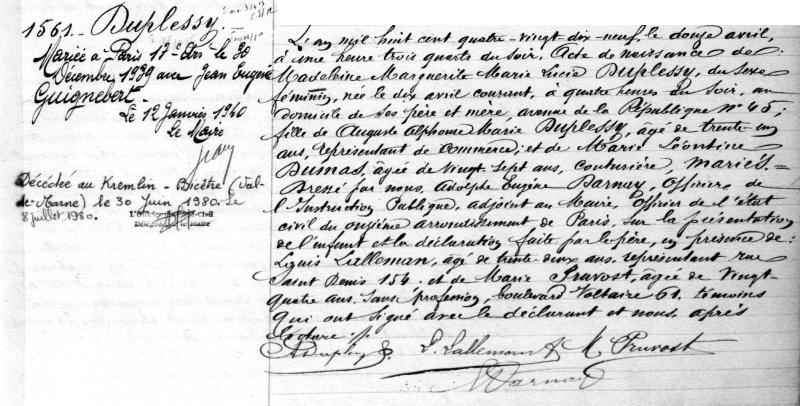 1561. Duplessy.
Mariée à Paris 17e Arrt le 30
Décembre 1939 avec Jean Eugène
Guignebert.
Le 12 Janvier 1940
Le Maire
Décédée au Kremlin-Bicêtre (Val-
de-Marne) le 30 Juin 1980. Le
8 juillet 1980.
L'an mil huit cent quatre-vingt-dix-neuf, le douze avril,
à une heure trois quarts du soir. Acte de naissance de:
Madeleine Marguerite Marie Lucie Duplessy, du sexe
féminin, née le dix avril courant, à quatre heures du soir, au
domicile de ses père et mère, avenue de la République No 45;
fille de Auguste Alphonse Marie Duplessy, âgé de trente-un
ans, représentant de commerce; et de Marie Léontine
Dumas, âgée de vingt-sept ans, couturière, mariés.
Dressé par nous, Adolphe Eugène Barnay, Officier de
l'Instruction Publique, adjoint au Maire, Officier de l'état
civil du onzième arrondissement de Paris, sur la présentation
de l'enfant et la déclaration faite par le père, en présence de:
Louis Lalleman, âgé de trente-deux ans, représentant rue
Saint Denis 154; et de Marie Pruvost, âgée de vingt-
quatre ans, sans profession, boulevard Voltaire 61, témoins
qui ont signé avec le déclarant et nous, après
lecture ./.
ADuplessy L. Lallemand M. Pruvost
Barnay